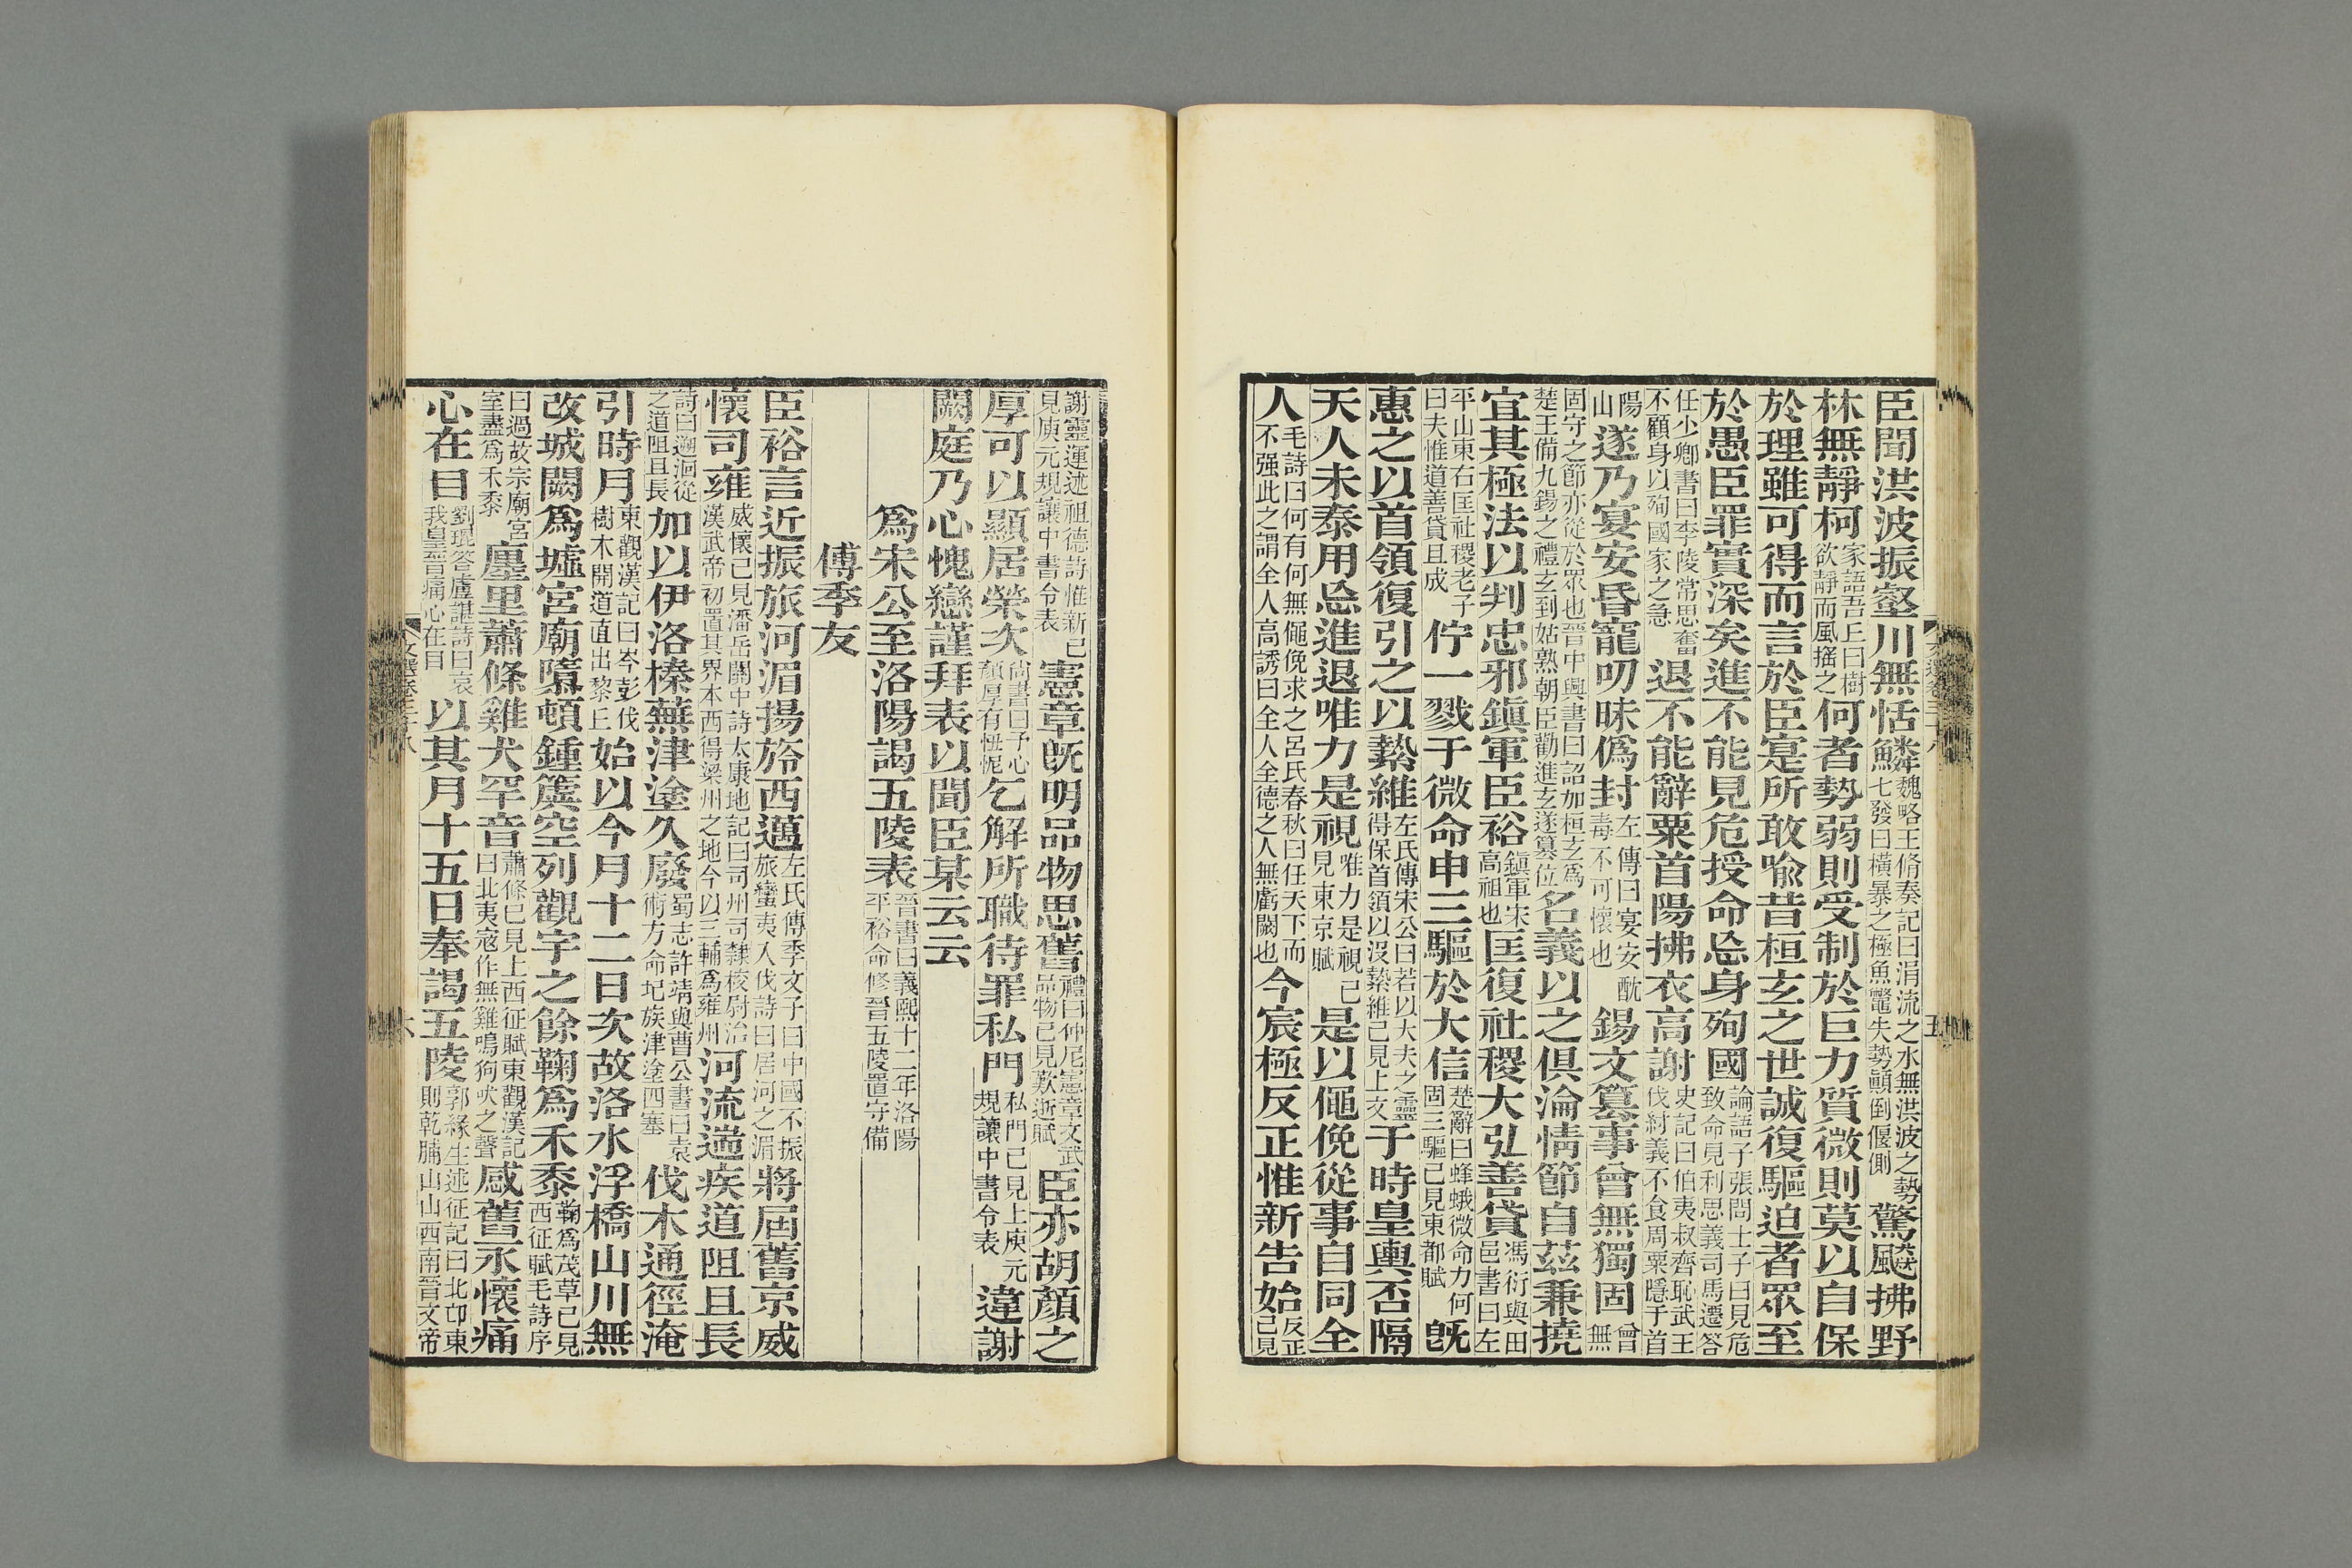 臣聞洪波振壑川無恬鱗魏略王脩奏記曰涓流之水無洪波之勢七發曰橫暴之極魚鼈失勢顚倒偃側驚飈拂野
林無靜柯家語吾丘曰樹欲靜而風搖之何者勢弱則受制於巨力質微則莫以自保
於理雖可得而言於臣寔所敢喩昔桓玄之世誠復驅迫者眾至
於愚臣罪實深矣進不能見危授命忘身殉國論語子張問士子曰見危致命見利思義司馬遷答
任少卿書曰李陵常思奮不顧身以殉國家之急退不能辭粟首陽拂衣高謝史記曰伯夷叔齊恥武王伐紂義不食周粟隱于首
陽山遂乃宴安昏寵叨昧僞封左傳曰宴安酖毒不可懷也錫文篡事曾無獨固曾無
固守之節亦從於眾也晉中興書曰詔加桓玄爲楚王備九錫之禮玄到姑熟朝臣勸進玄遂篡位名義以之俱淪情節自茲兼撓
宜其極法以判忠邪鎭軍臣裕鎭軍宋高祖也匡復社稷大弘善貸馮衍與田邑書曰左
平山東右匡社稷老子曰夫惟道善貸且成佇一戮于微命申三驅於大信楚辭曰蜂蛾微命力何固三驅已見東都賦旣
惠之以首領復引之以縶維左氏傳宋公曰若以大夫之靈得保首領以沒縶維已見上文于時皇輿否隔
天人未泰用忘進退唯力是視唯力是視已見東京賦是以僶俛從事自同全
人毛詩曰何有何無僶俛求之呂氏春秋曰任天下而不强此之謂全人高誘曰全人全德之人無虧闕也今宸極反正惟新告始反正已見
五
謝靈運述祖德詩惟新已見庾元規讓中書令表憲章旣明品物思舊禮曰仲尼憲章文武品物已見歎逝賦臣亦胡顏之
厚可以顯居榮次尚書曰予心顏厚有忸怩乞解所職待罪私門私門已見上庾元規讓中書令表違謝
闕庭乃心愧戀謹拜表以聞臣某云云
爲宋公至洛陽謁五陵表晉書曰義熙十二年洛陽平裕命修晉五陵置守備
傅季友
臣裕言近振旅河湄揚旍西邁左氏傳季文子曰中國不振旅蠻夷入伐詩曰居河之湄將屆舊京威
懷司雍威懷已見潘岳關中詩太康地記曰司州司隸校尉治漢武帝初置其界本西得梁州之地今以三輔爲雍州河流遄疾道阻且長
詩曰遡洄從之道阻且長加以伊洛榛蕪津塗久廢蜀志許靖與曹公書曰袁術方命圮族津塗四塞伐木通徑淹
引時月東觀漢記曰岑彭伐樹木開道直出黎丘始以今月十二日次故洛水浮橋山川無
改城闕爲墟宮廟隳頓鍾簴空列觀宇之餘鞠爲禾黍鞠爲茂草已見西征賦毛詩序
曰過故宗廟宮室盡爲禾黍廛里蕭條雞犬罕音蕭條已見上西征賦東觀漢記曰北夷寇作無雞鳴狗吠之聲感舊永懷痛
心在目劉琨答盧諶詩曰哀我皇晉痛心在目以其月十五日奉謁五陵郭緣生述征記曰北邙東則乾脯山山西南晉文帝
文選卷三十八
六